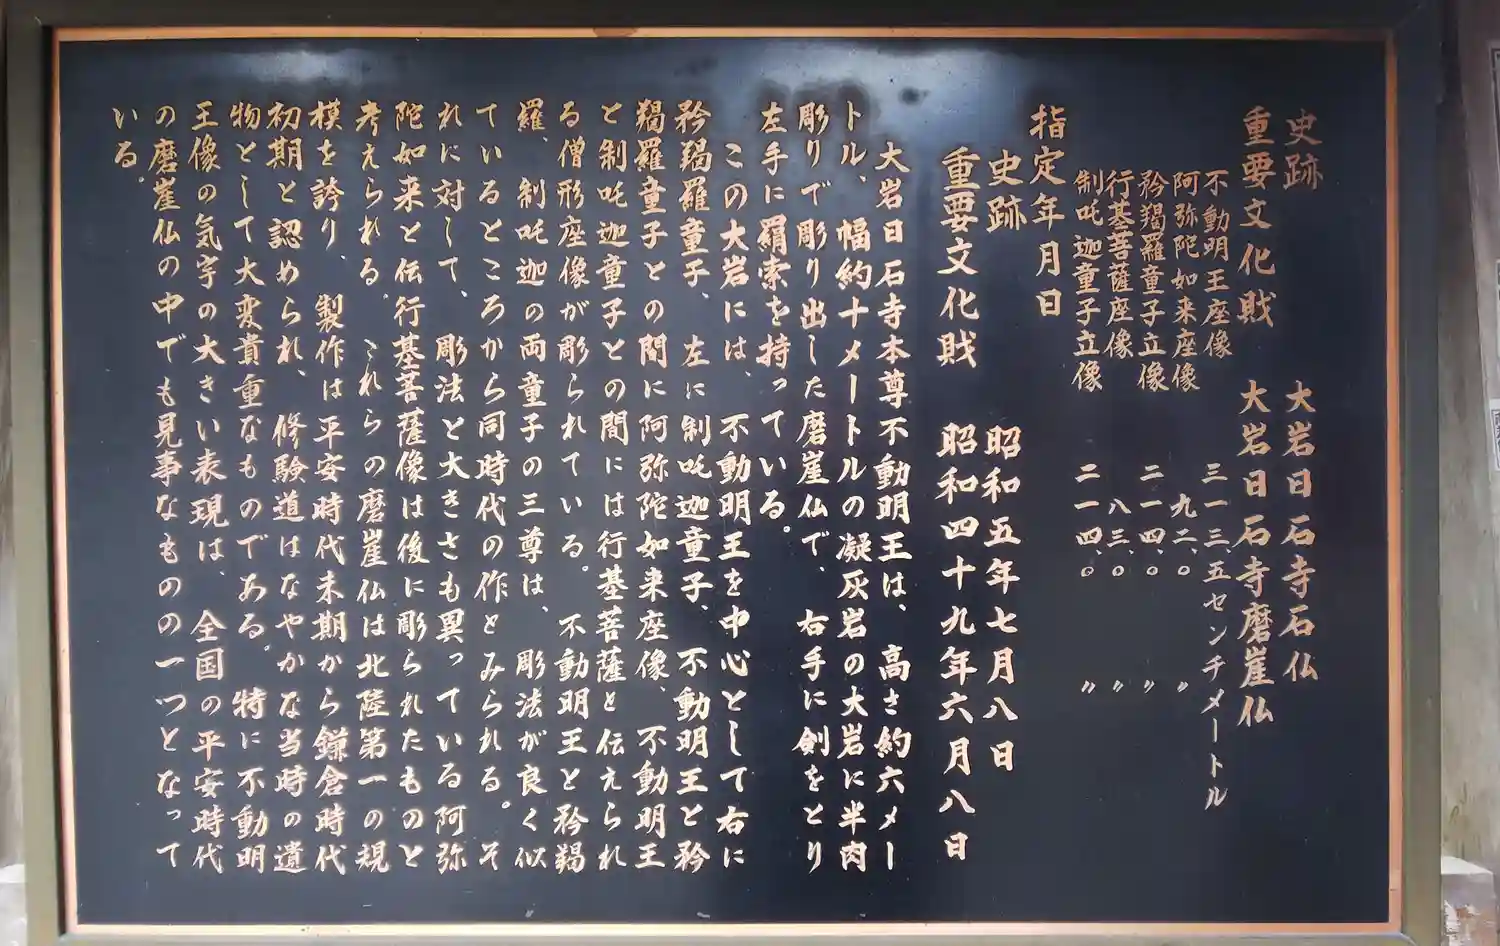 史跡　大岩日石寺石仏
重要文化財　大岩日石寺磨崖仏
不動明王座像　三一三.五センチメートル
阿弥陀如来座像　九二.〇　〃
矜羯羅童子立像　二一四.〇　〃
行基菩薩座像　八三.〇　〃
制吒迦童子立像　二一四.〇　〃
指定年月日
史跡　昭和五年七月八日
重要文化財　昭和四十九年六月八日
大岩日石寺本尊不動明王は、高さ約六メー
トル、幅約十メートルの凝灰岩の大岩に半肉
彫りで彫り出した磨崖仏で、右手に剣をとり
左手に羂索を持っている。
この大岩には、不動明王を中心として右に
矜羯羅童子、左に制吒迦童子、不動明王と矜
羯羅童子との間に阿弥陀如来座像、不動明王
と制吒迦童子との間には行基菩薩と伝えられ
る僧形座像が彫られている。不動明王と矜羯
羅、制吒迦の両童子の三尊は、彫法が良く似
ているところから同時代の作とみられる。そ
れに対して、彫法と大きさも異っている阿弥
陀如来と伝行基菩薩像は後に彫られたものと
考えられる。これらの磨崖仏は北陸第一の規
模を誇り、製作は平安時代末期から鎌倉時代
初期と認められ、修験道はなやかな当時の遺
物として大変貴重なものである。特に不動明
王像の気宇の大きい表現は、全国の平安時代
の磨崖仏の中でも見事なものの一つとなって
いる。